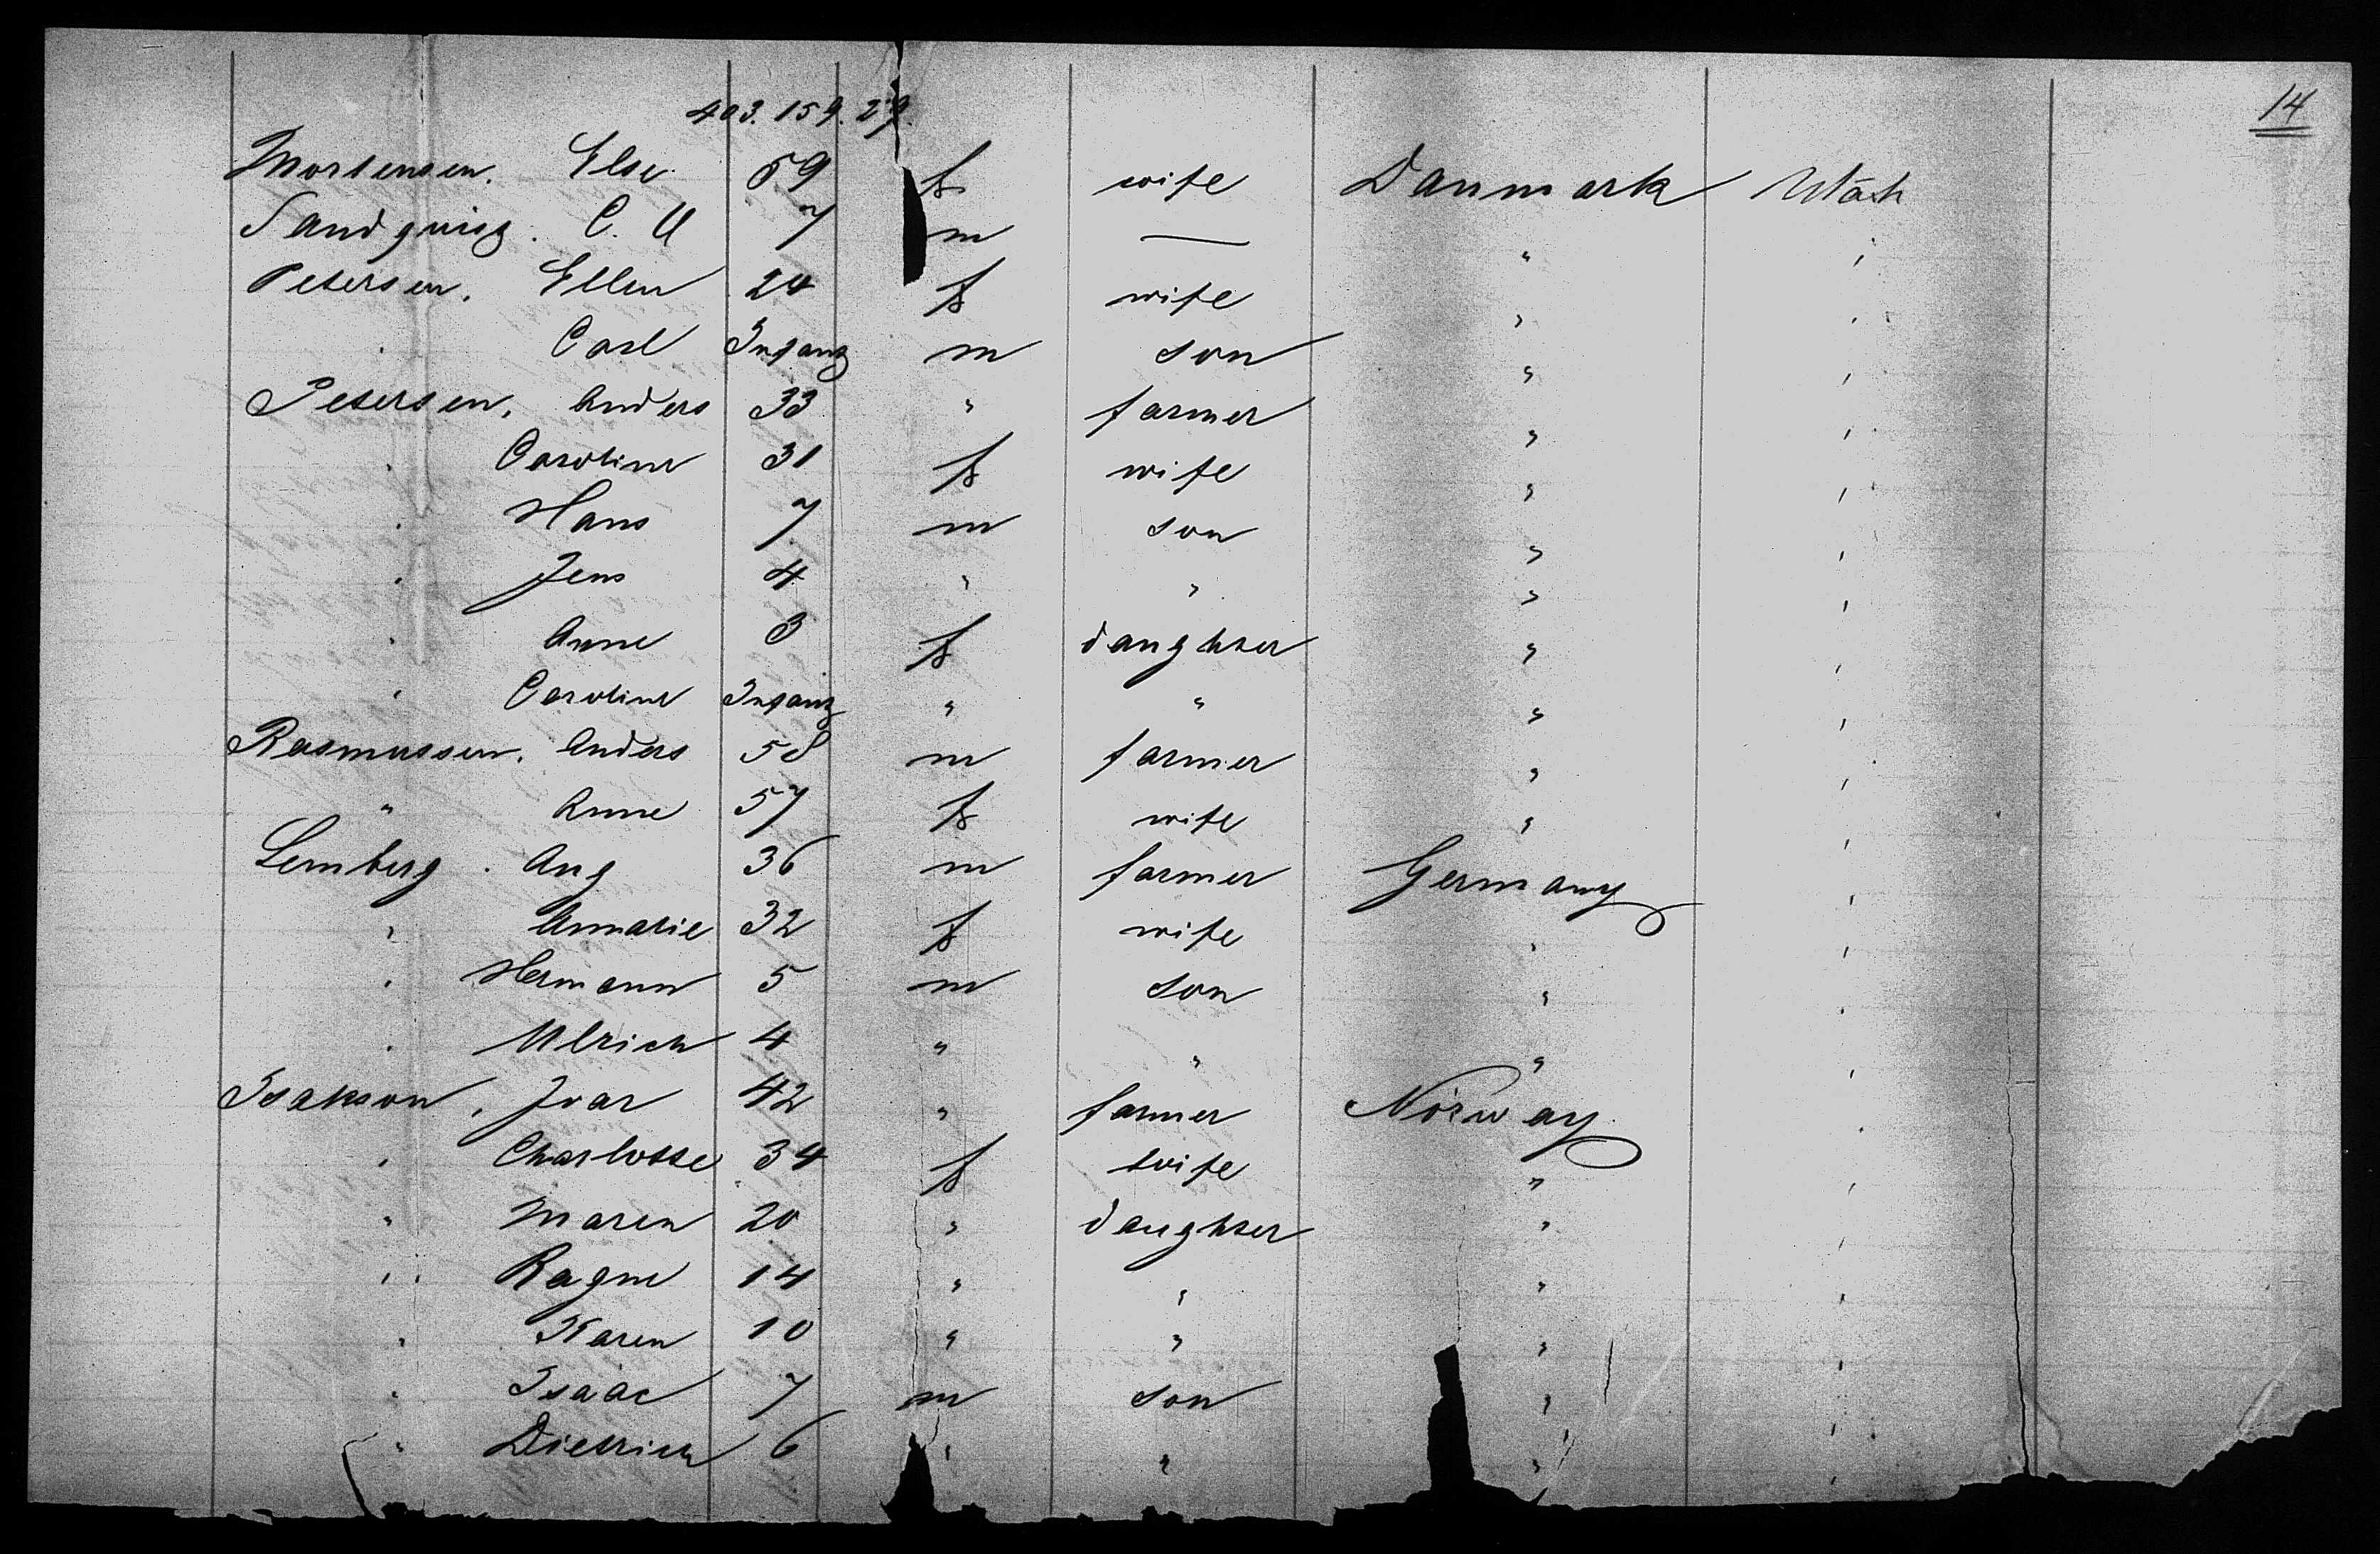 14
403. 159. 29.
Mortensen. Else 59 f wife Danmark Utah
Sandquist. C. U 7 m — " "
Petersen. Ellen 24 f wife " "
" Carl Infant m son " "
Petersen. Anders 33 " farmer " "
" Caroline 31 f wife " "
" Hans 7 m son " "
" Jens 4 " " " "
" Anne 3 f daughter " "
" Caroline Infant " " " "
Rasmussen. Anders 58 m farmer " "
" Anne 57 f wife " "
Lemberg. Aug 36 m farmer Germany "
" Annatie 32 f wife " "
" Hermann 5 m son " "
" Ulrich 4 " " " "
Isakson. Ivar 42 " farmer Norway "
" Charlotte 34 f wife " "
" Maren 20 " daughter " "
" Ragne 14 " " " "
" Karen 10 " " " "
" Isaac 7 m son " "
" Dietrich 6 " " " "